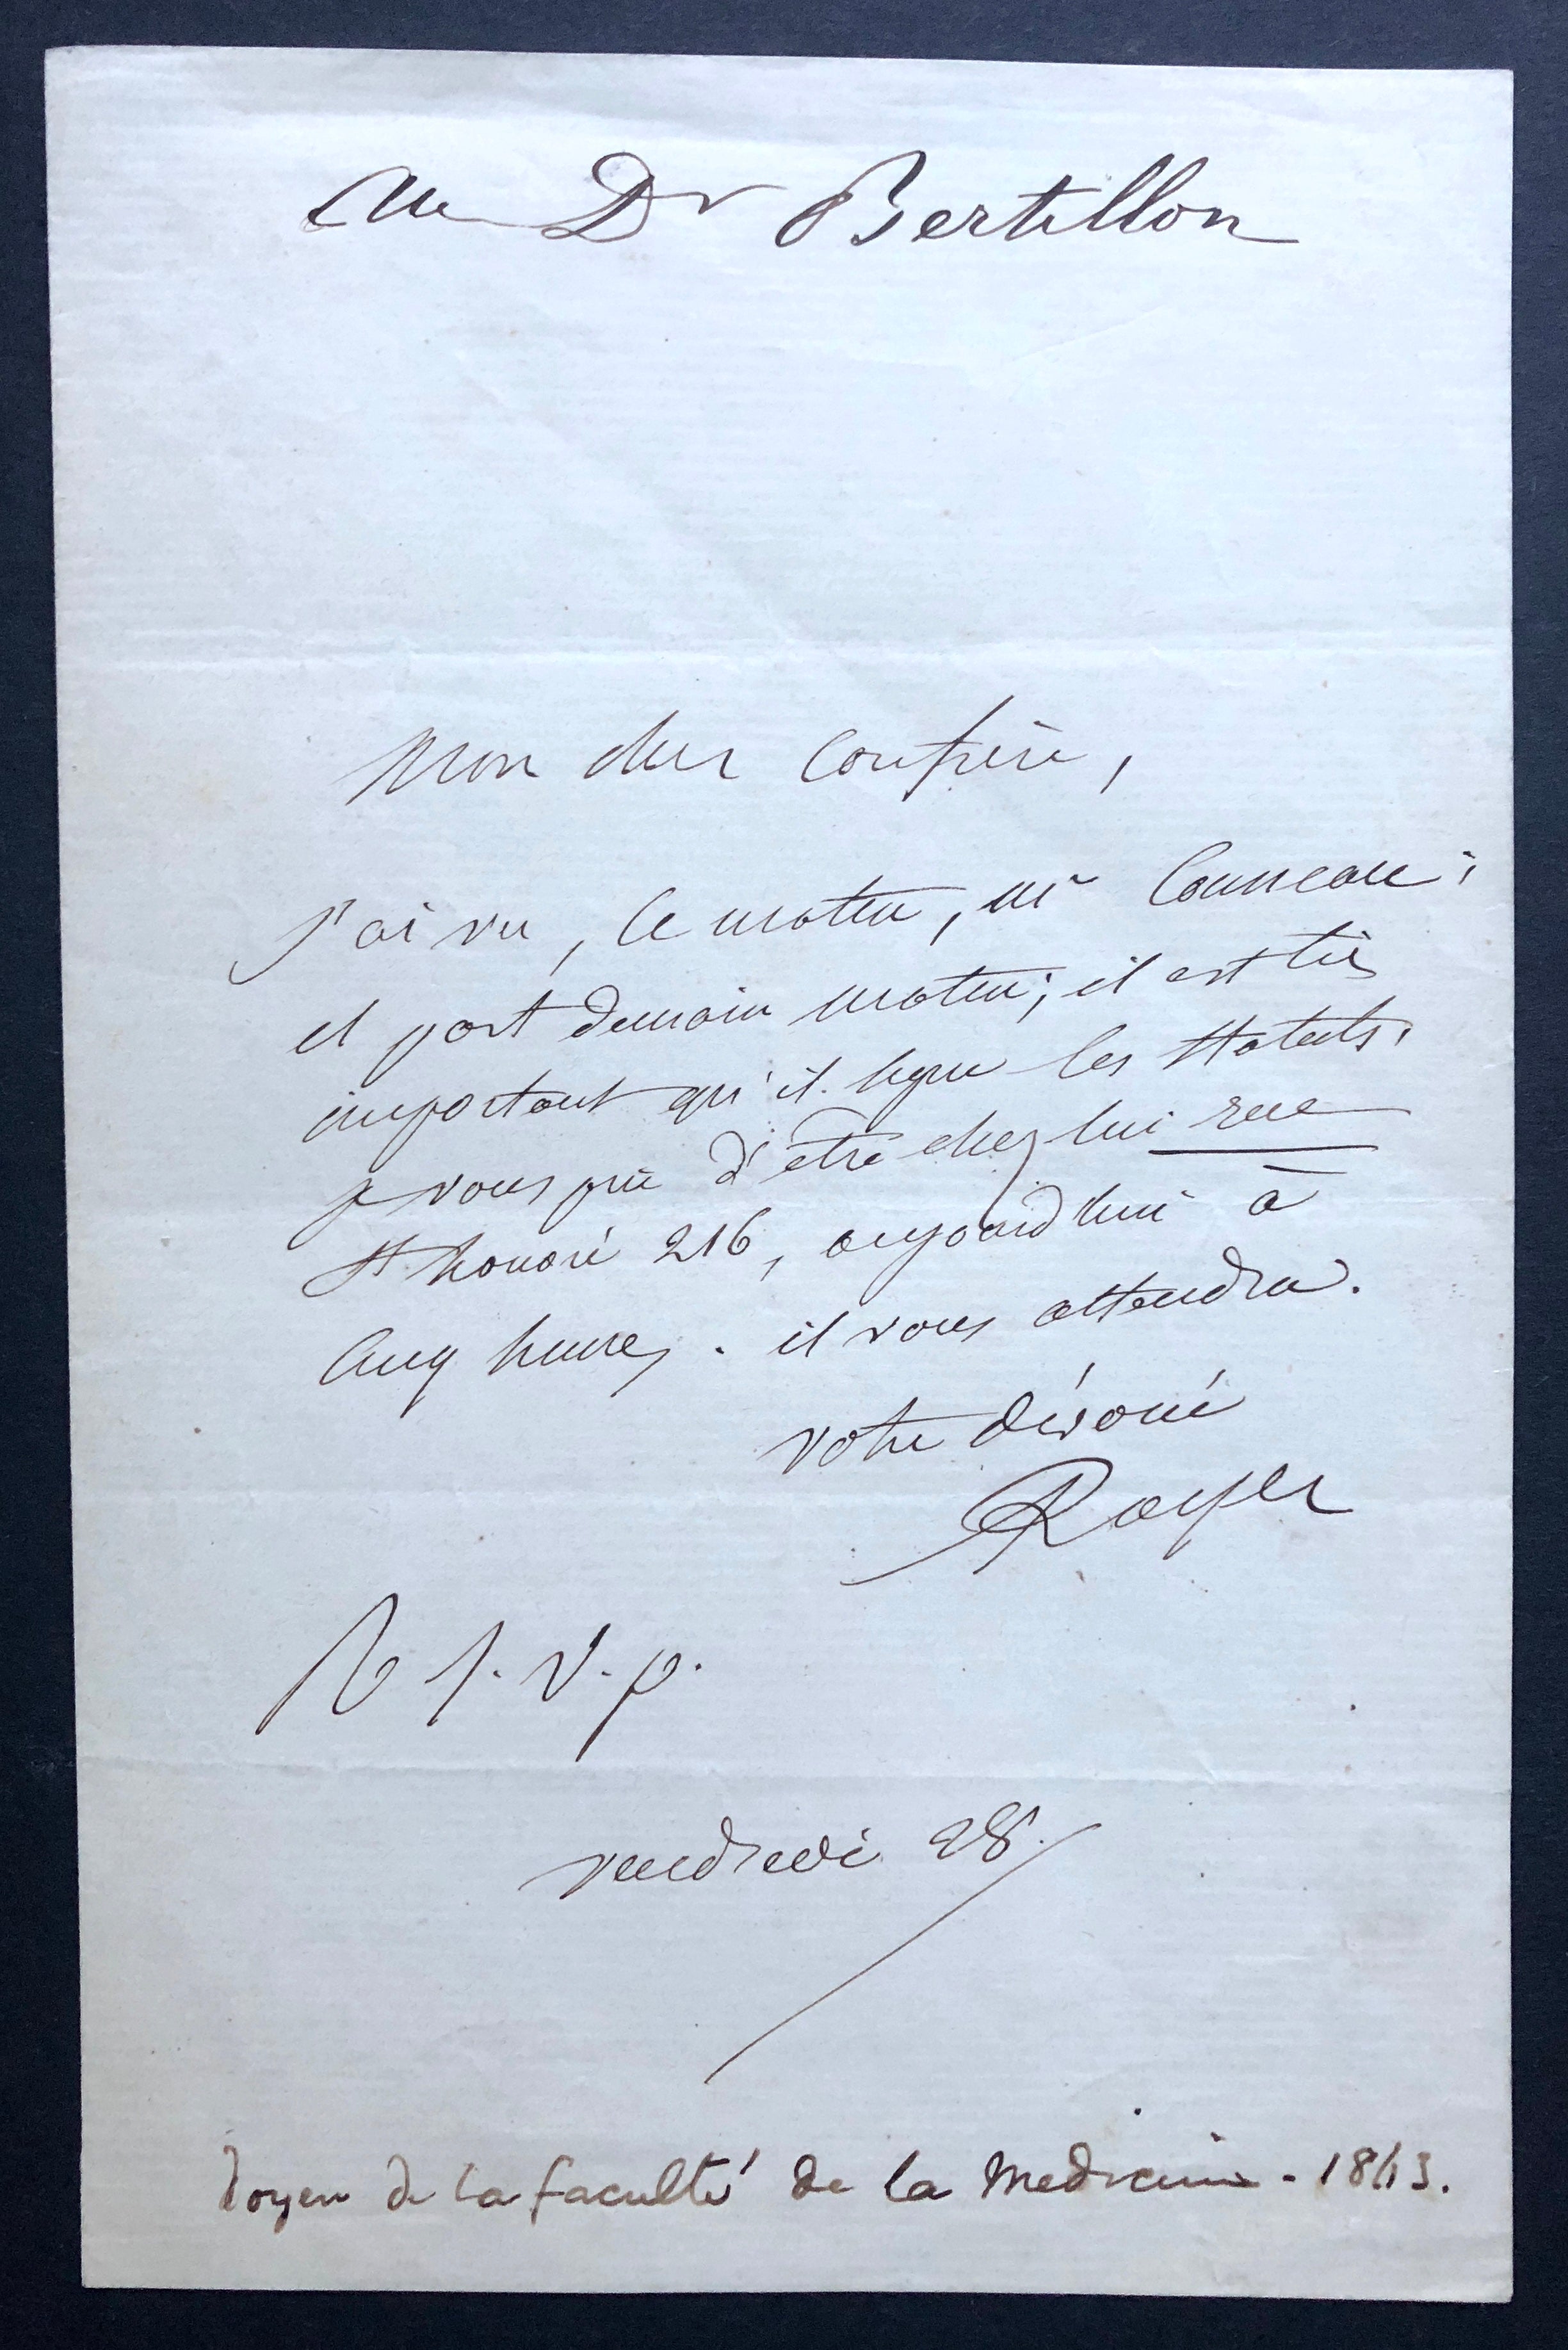 Mr Dr Bertillon
Mon cher confrère,
J'ai vu, ce matin, Mr Conneau;
il part demain matin; il est très
important qu'il signe les statuts.
je vous prie d'être chez lui rue
St honoré 216, aujourd'hui à
cinq heures. il vous attendra.
votre dévoué
Rayer
R s. v. p.
vendredi 28.
Doyen de la faculté de la Medecine - 1863.